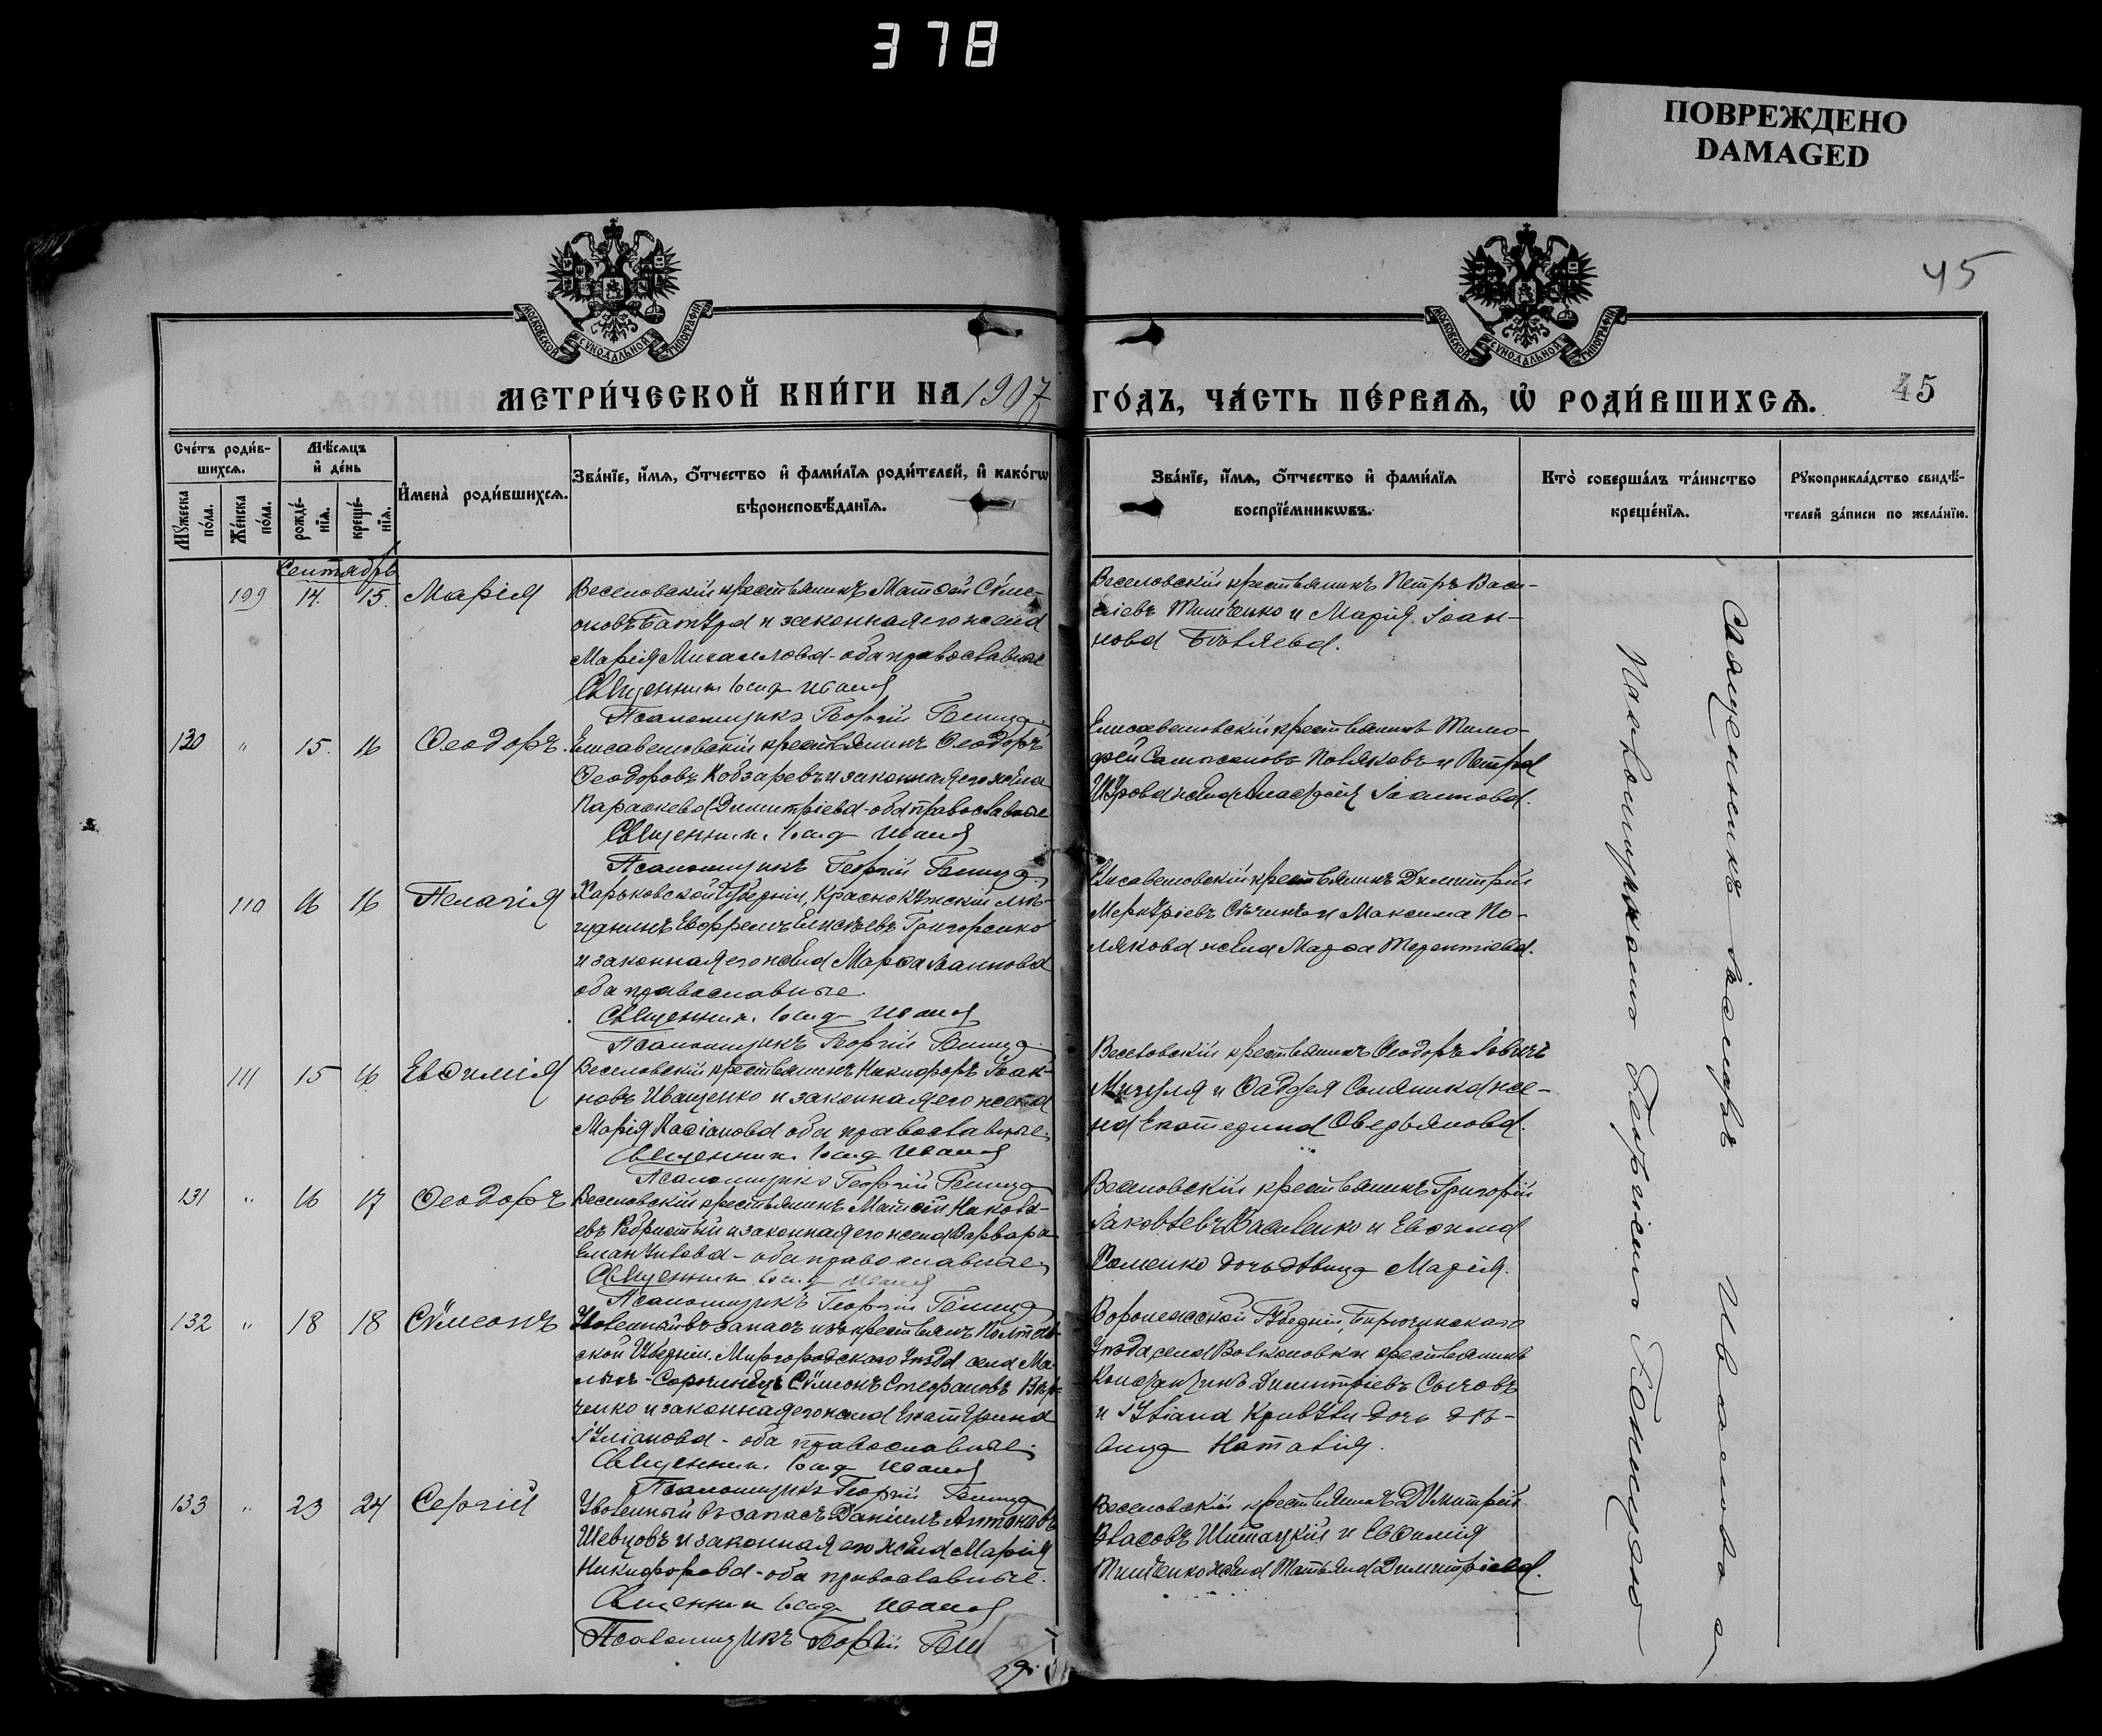 378
ПОВРЕЖДЕНО
DAMAGED
45
МОСКОВСКОЙ СѴНОДАЛЬНОЙ ТИПОГРАФІИ
МОСКОВСКОЙ СѴНОДАЛЬНОЙ ТИПОГРАФІИ
МЕТРИ́ЧЕСКОЙ КНИ́ГИ НА 1907
ГО́ДЪ, ЧА́СТЬ ПЕ́РВАѦ, Ѡ РОДИ́ВШИХСѦ.
45
Сче́тъ роди́в-
шихсѧ.
Мѣ́сѧцъ
и де́нь
Мꙋ́жеска по́ла.
Же́нска по́ла.
рожде́-
нїѧ.
креще́-
нїѧ.
И҆мена̀ роди́вшихсѧ.
Зва́нїе, и҆́мѧ, ѻ҆́тчество и҆ фами́лїѧ роди́телей, и҆ како́гѡ
вѣроисповѣ́данїѧ.
Зва́нїе, и҆́мѧ, ѻ҆́тчество и҆ фами́лїѧ
воспрїе́мникѡвъ.
Кто̀ соверша́лъ та́инство
креще́нїѧ.
Рꙋкоприкла́дство свидѣ́-
телей за́писи по жела́нїю.
Сентябрь
109 14. 15. Марія
Веселовскій крестьянинъ Матѳей Сѵме-
оновъ Батура и законная его жена
Марія Михаилова - оба православные
Священникъ Іосифъ Ивановъ
Псаломщикъ Георгій
Веселовскій крестьянинъ Петръ Васи-
ліевъ Тимченко и Марія Іоан-
нова Бѣляева.
130 " 15. 16 Ѳеодоръ.
Елисаветовскій крестьянинъ Ѳеодоръ
Ѳеодоровъ Кобзаревъ и законная его жена
Параскева Димитріева - оба православные
Священникъ Іосифъ Ивановъ
Псаломщикъ Георгій
Елисаветовскій крестьянинъ Тимо-
фей Сампсоновъ Поляковъ и Петра
жена Анастасія Іоаннова.
110 16 16 Пелагія
Харьковской Губерніи, Краснокутскій мѣ-
щанинъ Ефремъ Елисѣевъ Григоренко
и законная его жена Марѳа Іоаннова
оба православные.
Священникъ Іосифъ Ивановъ
Псаломщикъ Георгій
Елисаветовскій крестьянинъ Димитрій
Меркуріевъ Сѣчинъ и Максима По-
лякова жена Марѳа Терентіева.
111 15 16 Евѳимія
Веселовскій крестьянинъ Никифоръ Іоан-
новъ Иващенко и законная его жена
Марія Касіанова оба православные.
Священникъ Іосифъ Ивановъ
Псаломщикъ Георгій
Веселовскій крестьянинъ Ѳеодоръ
и Ѳаддея Соляника же-
на Екатерина Оверьянова.
131 " 16 17 Ѳеодоръ
Веселовскій крестьянинъ Матѳей Никола-
евъ Ребристый и законная его жена Варвара
Емануилова - оба православные,
Священникъ Іосифъ Ивановъ
Псаломщикъ Георгій
Веселовскій крестьянинъ Григорій
Іаковлевъ Василенко и Евѳима
дочь дѣвица Марія.
132 " 18 18 Сѵмеонъ
Уволенный въ запасъ изъ крестьянъ Полтав-
ской Губерніи, Миргородскаго Уѣзда села Ма-
лыхъ-Сорочинецъ Сѵмеонъ Стефановъ
и законная его жена Екатерина
Іуліанова - оба православные.
Священникъ Іосифъ Ивановъ
Псаломщикъ Георгій
Воронежской Губерніи, Бирюченскаго
Уѣзда села Волконовки крестьянинъ
Константинъ Димитріевъ Сычовъ
и дочь дѣ-
вица Наталія.
133 " 23 24 Сергій
Уволенный въ запасъ Даніилъ Антоновъ
Шевцовъ и законная его жена Марія
Никифорова - оба православные.
Священникъ Іосифъ Ивановъ
Псаломщикъ Георгій
Веселовскій крестьянинъ Димитрій
Власовъ и Евѳимія
жена Татьяна Димитріева.
Священникъ Іосифъ
Псаломщикомъ Георгіемъ